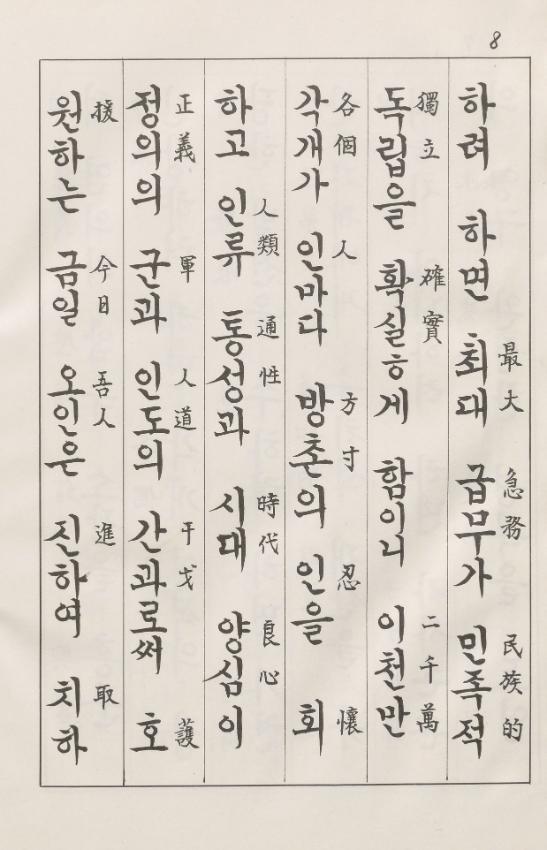 8
하려 하면 최대 급무가 민족적
最大 急務 民族的
독립을 확실ㅎ게 함이니 이천만
獨立 確實 二千萬
각개가 인마다 방촌의 인을 회
各個 人 方寸 忍 懷
하고 인류 통성과 시대 양심이
人類 通性 時代 良心
정의의 군과 인도의 간과로써 호
正義 軍 人道 干戈 護
원하는 금일 오인은 진하여 치하
援 今日 吾人 進 取